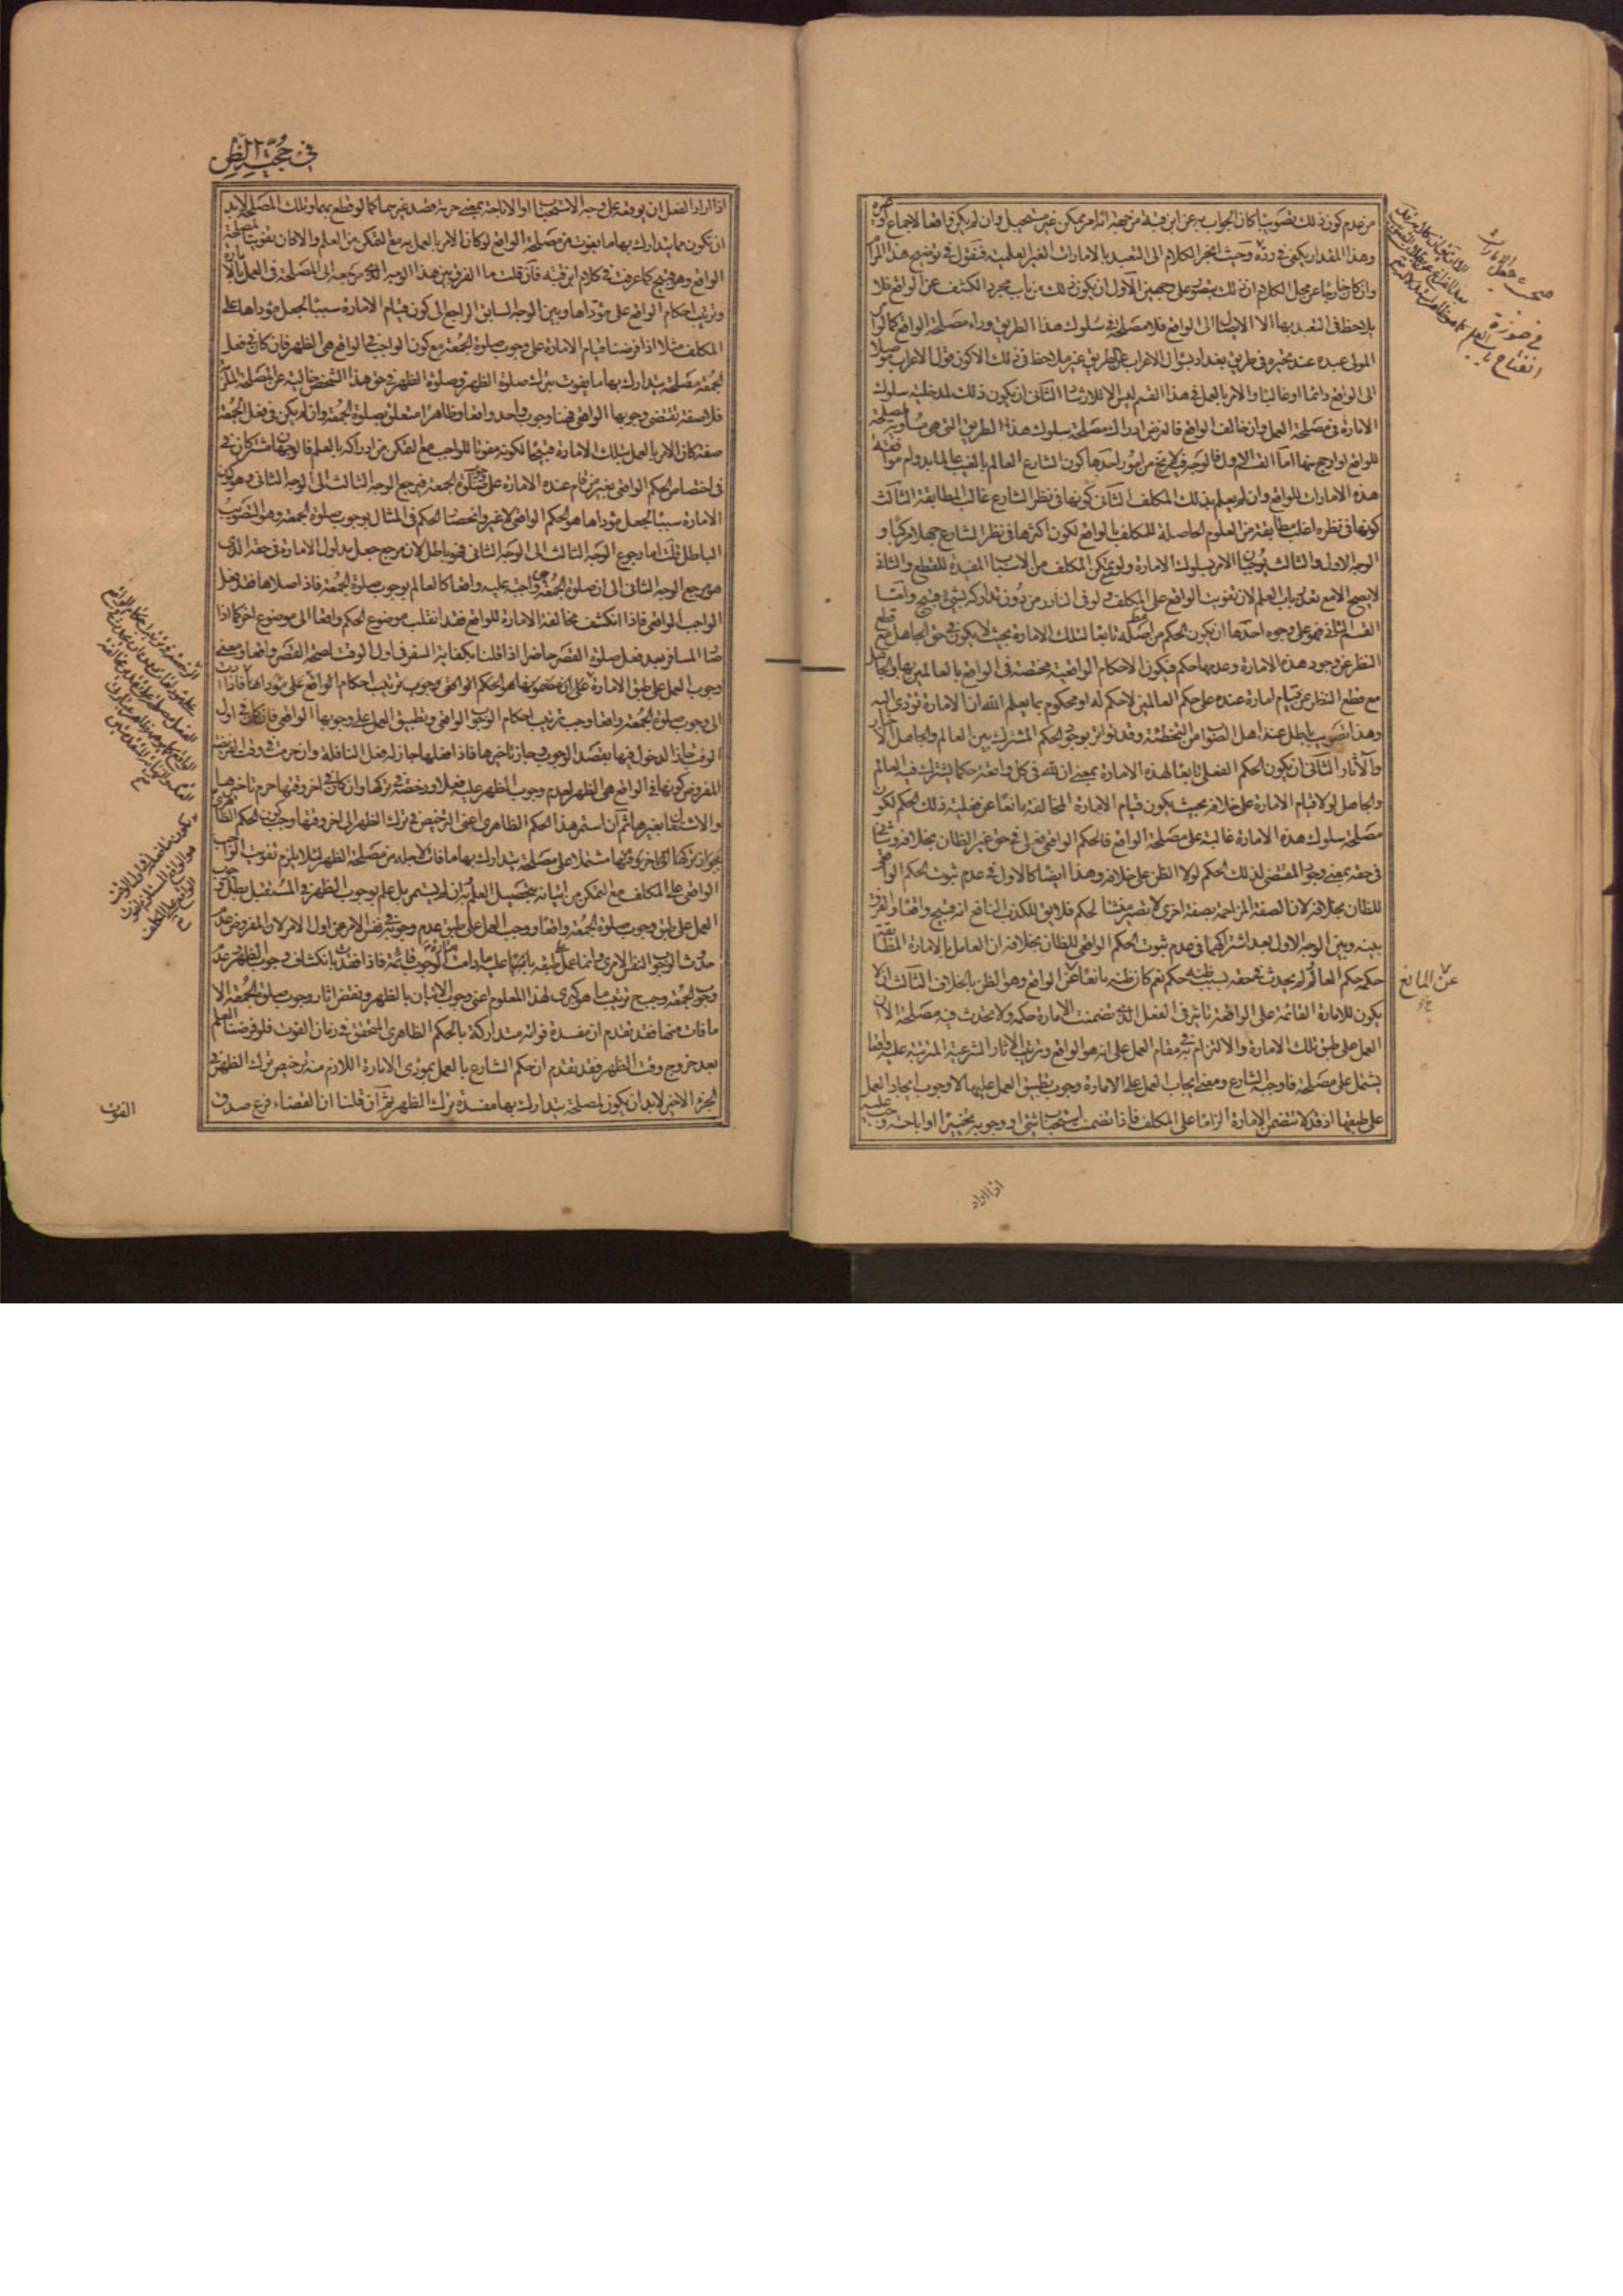 من عدم كون ذلك تصويبا كان الجواب به عن ابن قبة من جهة انه امر ممكن غير مستحيل وان لم يكن واقعا لاجماع او غيره
وهذا المقدار يكفي في رده وحيث انجر الكلام الى التعبد بالامارات الغير العلمية فنقول في توضيح هذا المرام
وان كان خارجا عن محل الكلام ان ذلك يتصور على وجهين الاول ان يكون ذلك من باب مجرد الكشف عن الواقع فلا
يلاحظ في التعبد بها الا الايصال الى الواقع فلا مصلحة في سلوك هذا الطريق وراء مصلحة الواقع كما لو امر
المولى عبده عند تحيره في طريق بغداد بسؤال الاعراب عن الطريق غير ملاحظ في ذلك الا كون قول الاعراب موصلا
الى الواقع دائما او غالبا والامر بالعمل في هذا القسم ليس الا للارشاد الثاني ان يكون ذلك لمدخلية سلوك
الامارة في مصلحة العمل وان خالف الواقع فالغرض ادراك مصلحة سلوك هذا الطريق التي هي مساوية لمصلحة
الواقع او ارجح منها اما القسم الاول فالوجه فيه لا يخ من امور احدها كون الشارع العالم بالغيب عالما بدوام موافقة
هذه الامارات للواقع وان لم يعلم بذلك المكلف الثاني كونها في نظر الشارع غالب المطابقة الثالث
كونها في نظره اغلب مطابقة من العلوم الحاصلة للمكلف بالواقع لكون اكثرها في نظر الشارع جهلا مركبا و
الوجه الاول والثالث يوجبان الامر بسلوك الامارة ولو مع تمكن المكلف من الاسباب المفيدة للقطع والثاني
لا يصح الا مع تعذر باب العلم لان تفويت الواقع على المكلف ولو في النادر من دون تداركه بشيء قبيح واما
القسم الثاني فهو على وجوه احدها ان يكون الحكم من اصله تابعا لتلك الامارة بحيث لا يكون في حق الجاهل مع قطع
النظر عن وجود هذه الامارة وعدمها حكم فيكون الاحكام الواقعية مختصة في الواقع بالعالمين بها والجاهل
مع قطع النظر عن قيام امارة عنده على حكم العالمين لا حكم له او محكوم بما يعلم الله ان الامارة تؤدي اليه
وهذا تصويب باطل عند اهل الصواب من التخطئة وقد تواتر بوجود الحكم المشترك بين العالم والجاهل الاخبار
والآثار الثاني ان يكون الحكم الفعلي تابعا لهذه الامارة بمعنى ان لله في كل واقعة حكما يشترك فيه العالم
والجاهل لولا قيام الامارة على خلافه بحيث يكون قيام الامارة المخالفة مانعا عن فعلية ذلك الحكم لكون
مصلحة سلوك هذه الامارة غالبة على مصلحة الواقع فالحكم الواقعي فعلي في حق غير الظان بخلافه وشأني
في حقه بمعنى وجود المقتضي لذلك الحكم لولا الظن على خلافه وهذا ايضا كالاول في عدم ثبوت الحكم الواقعي
للظان بخلافه لان الصفة المزاحمة بصفة اخرى لا تصير منشأ لحكم فلا يق للكذب النافع انه قبيح واقعا والفرق
بينه وبين الوجه الاول بعد اشتراكهما في عدم ثبوت الحكم الواقعي للظان بخلافه ان العامل بالامارة المطابقة
حكمه حكم العالم ولم يحدث في حقه بسبب ظنه حكم نعم كان ظنه مانعا عن الواقع وهو الظن بالخلاف الثالث ان لا
يكون للامارة القائمة على الواقعة تاثير في الفعل الذي تضمنت الامارة حكمه ولا تحدث فيه مصلحة الا ان
العمل على طبق تلك الامارة والالتزام به في مقام العمل على انه هو الواقع وترتيب الآثار الشرعية المترتبة عليه واقعا
يشتمل على مصلحة فاوجبه الشارع ومعنى ايجاب العمل على الامارة وجوب تطبيق العمل عليها لا وجوب ايجاد العمل
على طبقها اذ قد لا تتضمن الامارة الزاما على المكلف فاذا تضمنت استحباب شيء او وجوبه تخييرا او اباحته وجب عليه
اذا اراد
في صورة
انفتاح باب العلم
عن المانع
في حجية الظن
اذا اراد الفعل ان يوقعه على وجه الاستحباب او الاباحة بمعنى حرمة قصد غيرهما كما لو قطع بهما وتلك المصلحة لابد
ان تكون مما يتدارك بها ما يفوت من مصلحة الواقع لو كان الامر بالعمل به مع التمكن من العلم والا كان تفويتا لمصلحة
الواقع وهو قبيح كما عرفت في كلام ابن قبه فان قلت ما الفرق بين هذا الوجه الذي مرجعه الى المصلحة في العمل بالامارة
وترتيب احكام الواقع على مؤداها وبين الوجه السابق الراجع الى كون قيام الامارة سببا لجعل مؤداها على
المكلف مثلا اذا فرضنا قيام الامارة على وجوب صلوة الجمعة مع كون الواجب في الواقع هي الظهر فان كان في فعل
الجمعة مصلحة يتدارك بها ما يفوت بترك صلوة الظهر فصلوة الظهر في حق هذا الشخص خالية عن المصلحة الملزمة
فلا صفة تقتضي وجوبها الواقعي فهنا وجوب واحد واقعا وظاهرا متعلق بصلوة الجمعة وان لم يكن في فعل الجمعة
صفة كان الامر بالعمل بتلك الامارة قبيحا لكونه مفوتا للواجب مع التمكن من ادراكه بالعلم فالوجهان مشتركان في
في اختصاص الحكم الواقعي بغير من قام عنده الامارة على وجوب صلوة الجمعة فيرجع الوجه الثالث الى الوجه الثاني وهو كون
الامارة سببا لجعل مؤداها هو الحكم الواقعي لا غير وانحصار الحكم في المثال بوجوب صلوة الجمعة وهو التصويب
الباطل قلت اما رجوع الوجه الثالث الى الوجه الثاني فهو باطل لان مرجع جعل مدلول الامارة في حقه الذي
هو مرجع الوجه الثاني الى ان صلوة الجمعة هي واجبة عليه واقعا كالعالم بوجوب صلوة الجمعة فاذا صلاها فقد فعل
الواجب الواقعي فاذا انكشف مخالفة الامارة للواقع فقد انقلب موضوع الحكم واقعا الى موضوع اخر كما اذا
صار المسافر بعد فعل صلوة القصر حاضرا اذا قلنا بكفاية السفر في اول الوقت لصحة القصر واقعا ومعنى
وجوب العمل على طبق الامارة وجوب ترتيب احكام الواقع على مؤداها فاذا ادت
الى وجوب صلوة الجمعة واقعا وجب ترتيب احكام الوجوب الواقعي وتطبيق العمل على وجوبها الواقعي فان كان في اول
الوقت جاز الدخول فيها بقصد الوجوب وجاز تاخيرها فاذا فعلها جاز له فعل النافلة وان حرمت في وقت الفريضة
المفروض كونها في الواقع هي الظهر لعدم وجوب الظهر عليه فعلا ورخصته في تركها وان كان في اخر وقتها حرم تاخيرها
والاشتغال بغيرها ثم ان استمر هذا الحكم الظاهري اعني الترخيص في ترك الظهر الى اخر وقتها وجب كون الحكم الظاهري
بجواز تركها الى اخر وقتها مشتملا على مصلحة يتدارك بها ما فات لاجله من مصلحة الظهر لئلا يلزم تفويت الواجب
الواقعي على المكلف مع التمكن من اتيانه بتحصيل العلم به وان لم يستمر بل علم بوجوب الظهر في المستقبل بطل وجوب
العمل على طبق وجوب صلوة الجمعة واقعا ووجب العمل على طبق عدم وجوبه في نفس الامر من اول الامر لان المفروض عدم
حدوث الوجوب النفس الامري وانما عمل على طبقه ما دامت امارة الوجوب قائمة فاذا فقدت بانكشاف وجوب الظهر وعدم
وجوب الجمعة وجب ح ترتيب ما هو كبرى لهذا المعلوم اعني وجوب الاتيان بالظهر ونقض اثار وجوب صلوة الجمعة الا
ما فات منها فقد تقدم ان مفسدة فواته متداركة بالحكم الظاهري المتحقق في زمان الفوت فلو فرضنا العلم
بعد خروج وقت الظهر فقد تقدم ان حكم الشارع بالعمل بمؤدى الامارة اللازم منه ترخيص ترك الظهر في
الجزء الاخير لابد ان يكون لمصلحة يتدارك بها مفسدة ترك الظهر ثم ان قلنا ان القضاء فرع صدق
الفوت